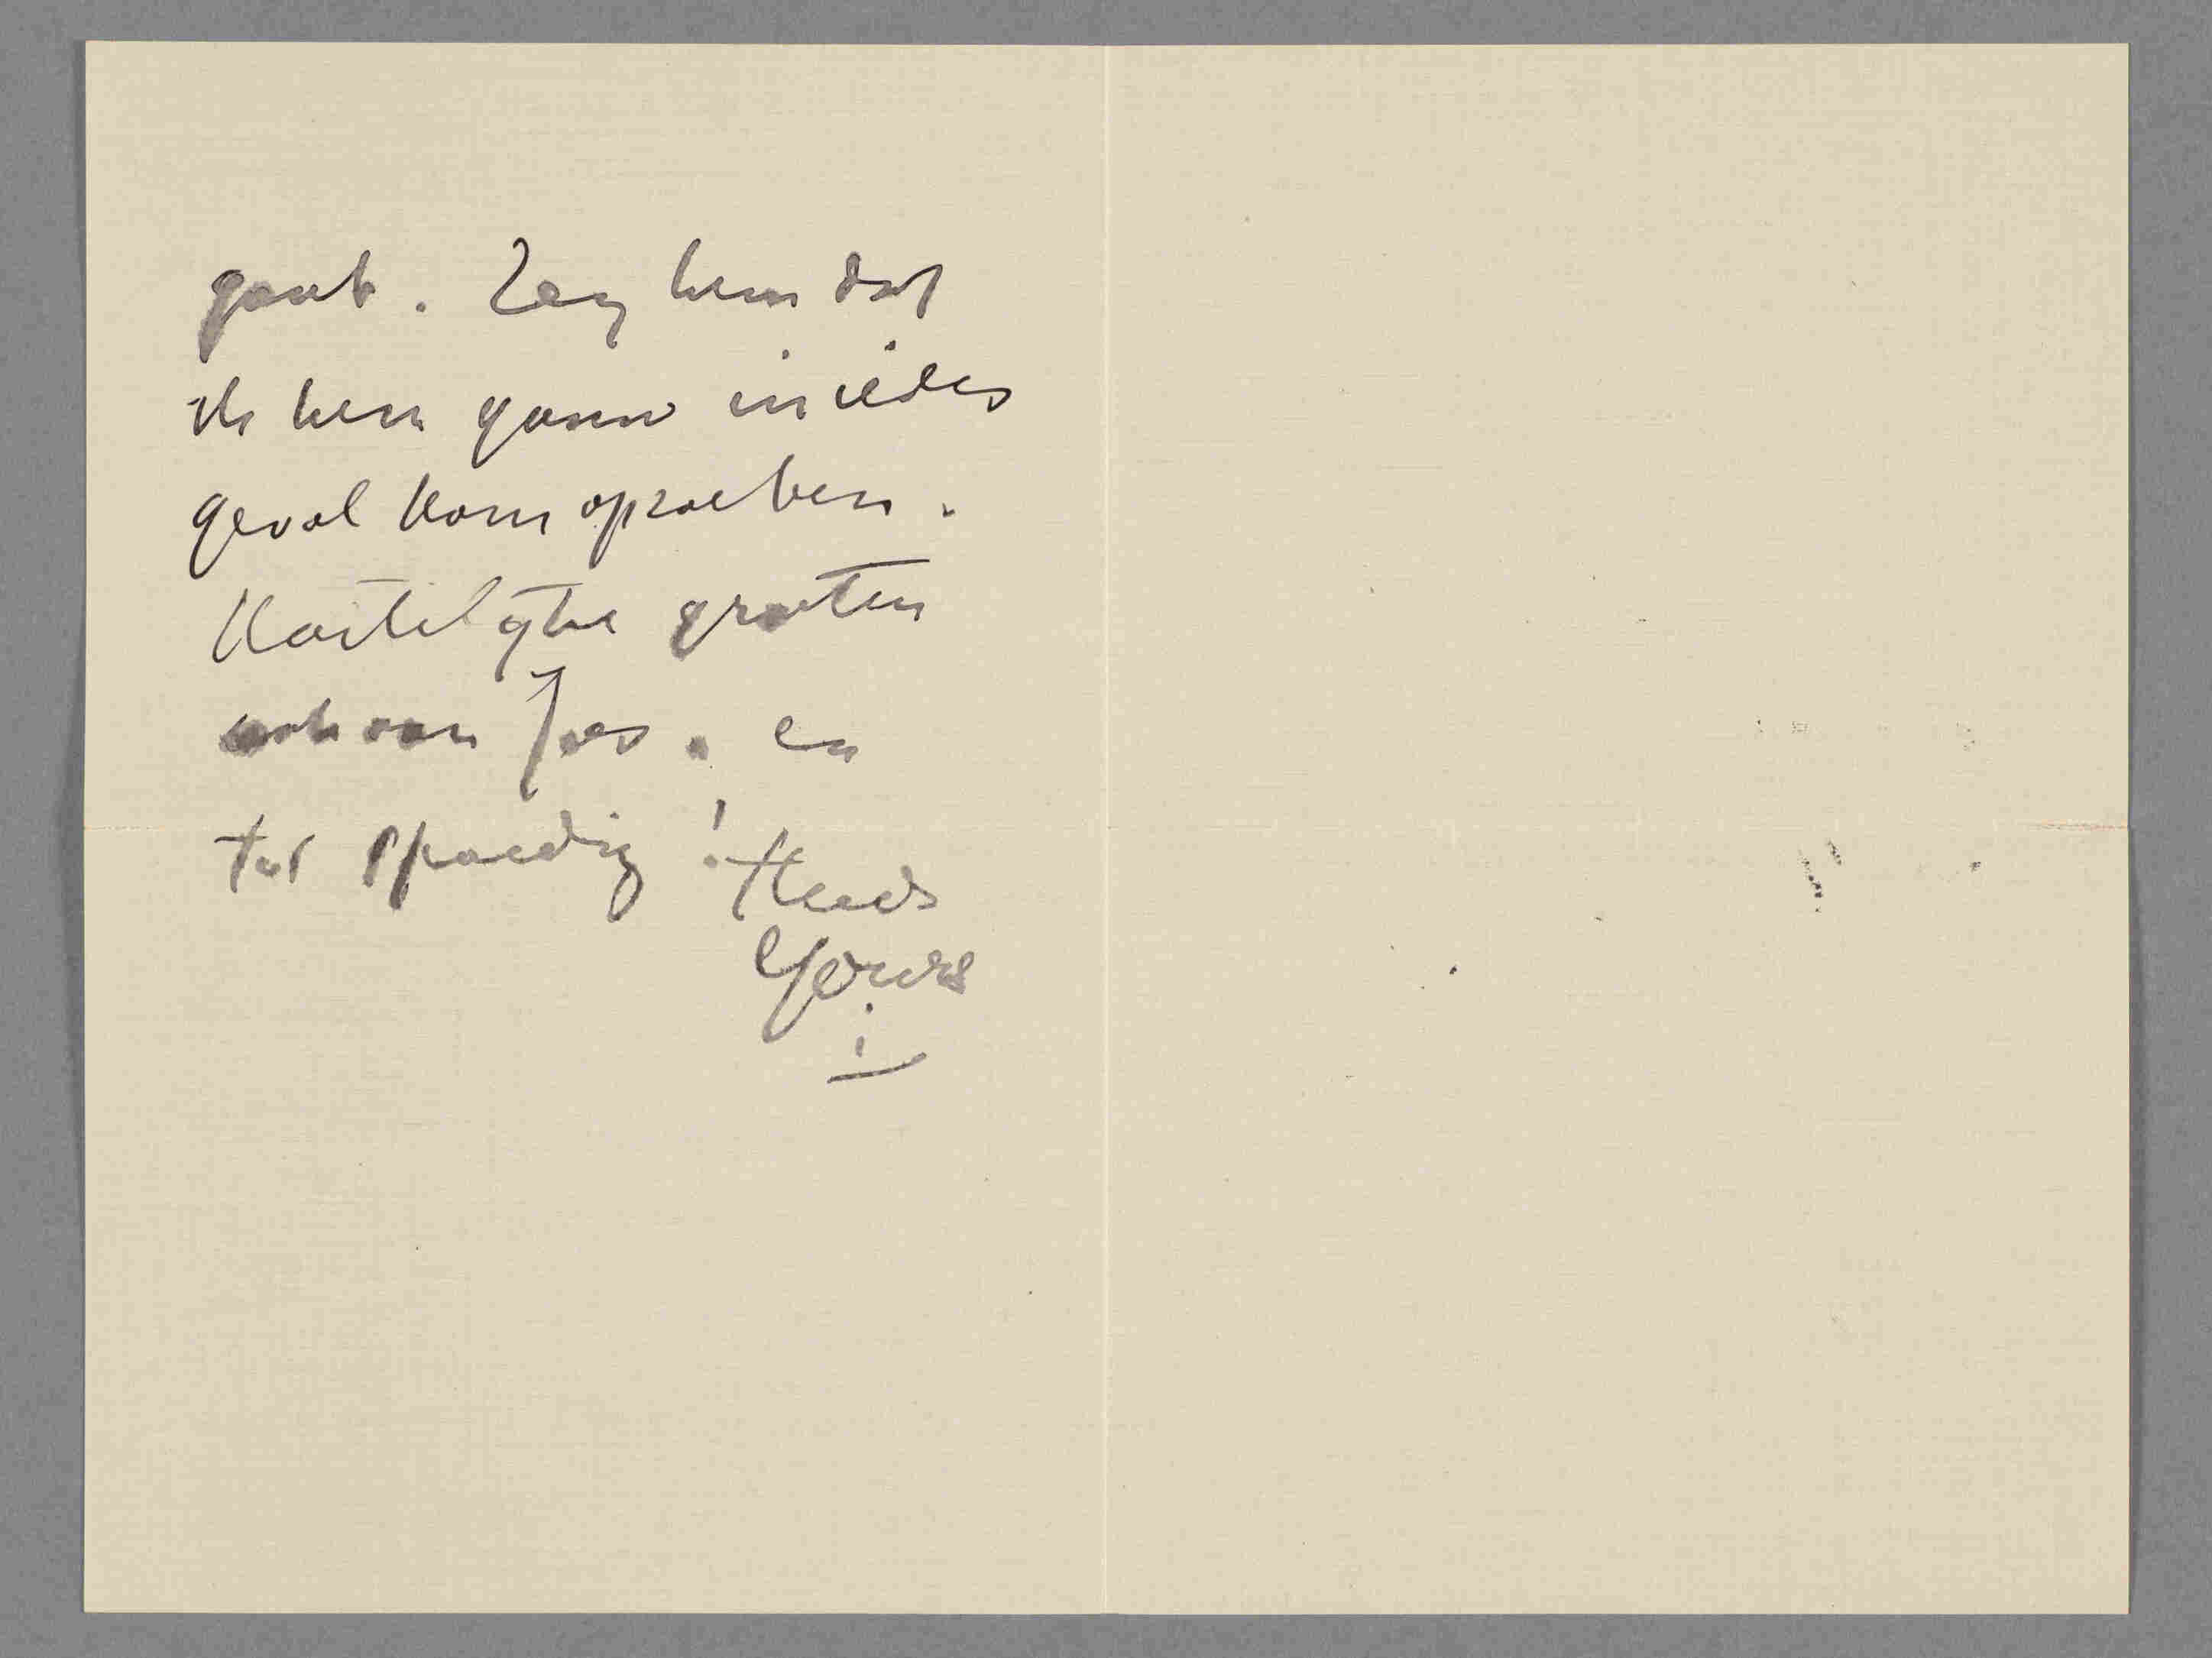 gaat. Zeg hem dat
ik hem gauw in ieder
geval kom opzoeken.
Hartelijke groeten
ook van Jos. en
tot spoedig! Steeds
Yours